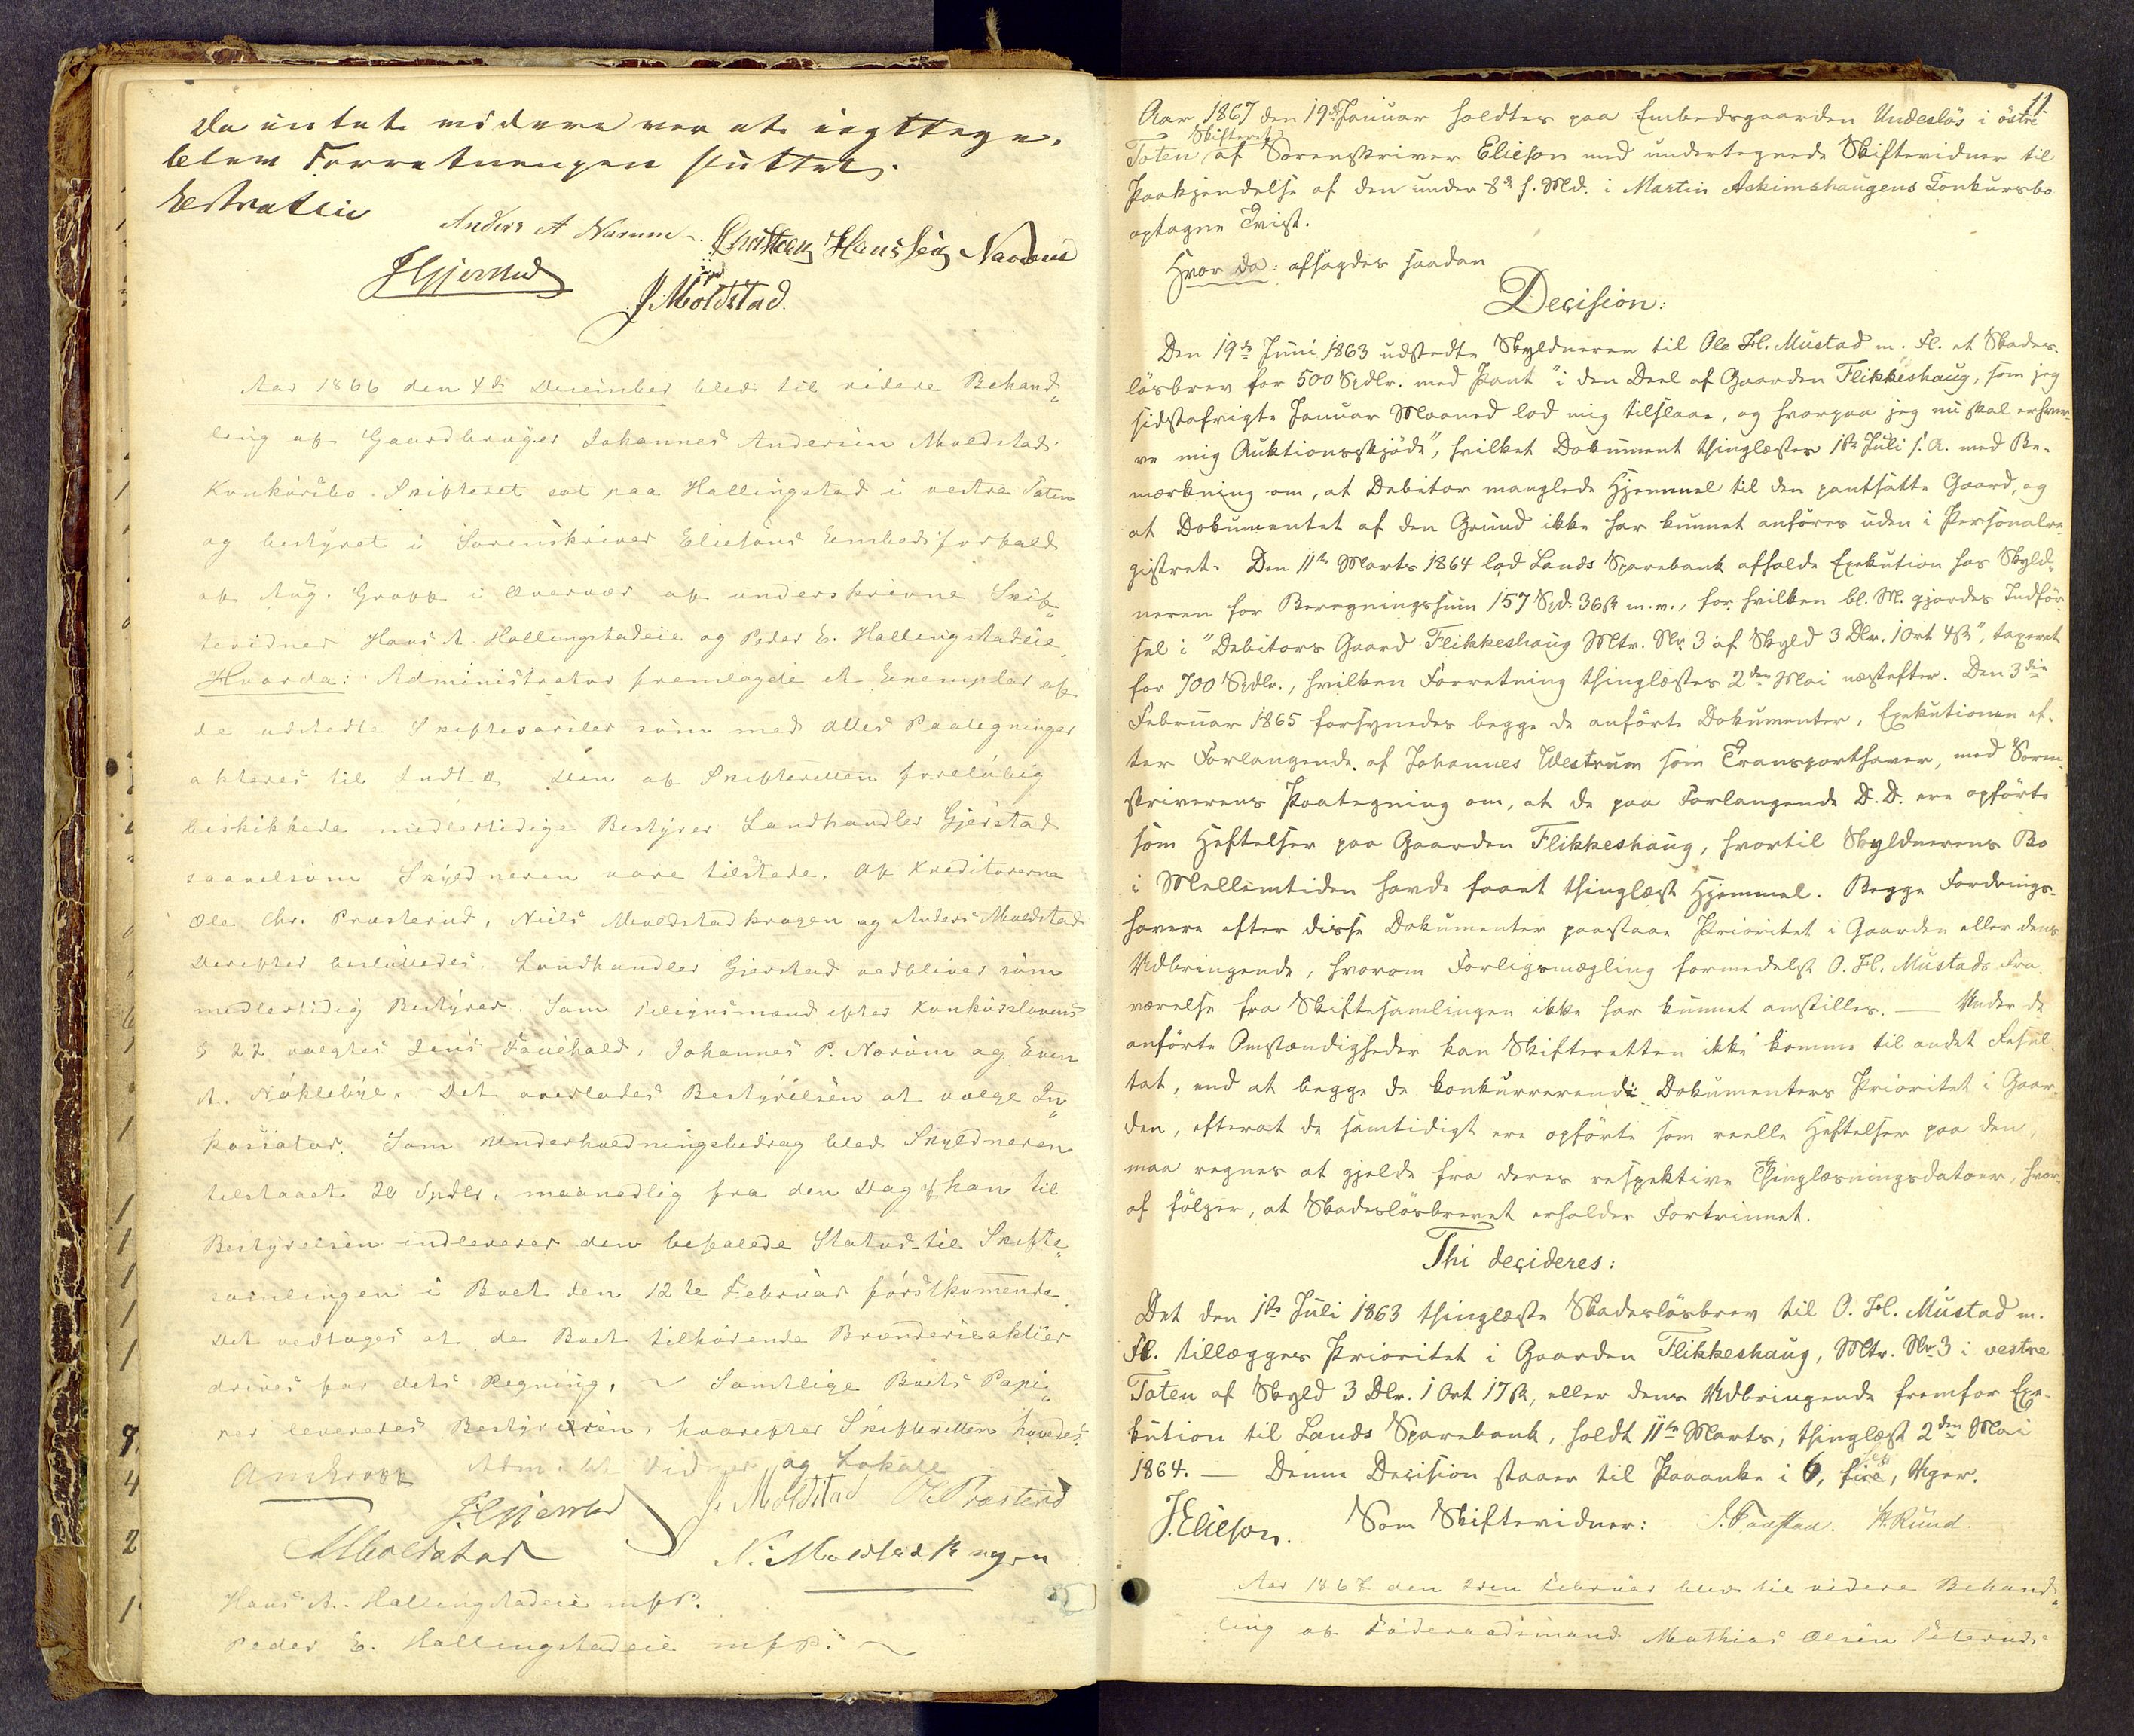 da intet videre var at iagttage,
blev Forretningen sluttet.
Anders A Narum Christen Hanssen Narum
J Gjerstad
J. Möldstad.
Aar 1866 den 4de December blev til videre Behand„
ling af Gaardbruger Johannes Andersen Moldstads
Konkursbo. Skifteret sat paa Hallingstad i vestre Toten
og bestyret i Sorenskriver Eliesons Embedsforfald
af Aug. Grobb i Overvær af underskrevne Skif„
tevidner Hans A. Hallingstadeie og Peder E. Hallingstadeie.
Hvorda: Administrator fremlagde et Exemplar af
de udstedte Skiftevarsler som med alles Paategninger
akteres til Indt. Den af Skifteretten foreløbig
beskikkede midlertidige Bestyrer Landhandler Gjerstad
saavelsom Skyldneren vare tilstede. Af Kreditorerne
Ole Chr. Præsterud, Niels Moldstadkragen og Anders Moldstad
Derefter besluttedes. Landhandler Gjerstad vedbliver som
midlertidig Bestyrer. Som Tilsynsmænd efter Konkurslovens
§ 22 valgtes Jens Fauchald, Johannes P. Narum og Even
A. Nøklebye. Det overlades Bestyrelsen at vælge In„
kassator. Som Underholdningsbidrag blev Skyldneren
tilstaaet 20 Spdlr. maanedlig fra den Dag af han til
Bestyrelsen indleverer den befalede Status til Skifte„
samlingen i Boet den 12te Februar førstkomende.
Det vedtages at de Boet tilhørende Brænderieaktier
drives for dets Regning. ~ Samtlige Boets Papi„
rer leveredes Bestyrelsen, hvorefter Skifteretten hævedes.
Adm. Vidner og Lokale
J. Gjerstad J. Möldstad O C Præsterud
A Moldstad N. Moldstadkragen
Hans A. Hallingstadeie m f P.
Peder E. Hallingstadeie m f P. ~
11
Aar 1867 den 19de Januar holdtes paa Embedsgaarden Undesløs i østre
Toten Skifteret af Sorenskriver Elieson med undertegnede Skiftevidner til
Paakjendelse af den under 8de f. Md. i Martin Askimshaugens Konkursbo
optagne Tvist.
Hvor da: afsagdes saadan
Decision:
Den 19de Juni 1863 udstedte Skyldneren til Ole H. Mustad m. Fl. et Skades-
løsbrev for 500 Spdlr. med Pant "i den Deel af Gaarden Flikkeshaug, som jeg
sidstafvigte Januar Maaned lod mig tilslaae, og hvorpaa jeg nu skal erhver-
ve mig Auktionsskjøde", hvilket Dokument thinglæstes 1ste Juli s. A. med Be-
mærkning om, at Debitor manglede Hjemmel til den pantsatte Gaard, og
at Dokumentet af den Grund ikke har kunnet anføres uden i Personalre-
gistret. Den 11te Marts 1864 lod Lands Sparebank afholde Exekution hos Skyld-
neren for Beregningssum 157 Spd. 36 ß m. v., for hvilken bl. A. gjordes Indfør-
sel i "Debitors Gaard Flikkeshaug Mtr. No 3 af Skyld 3 Dlr. 1 Ort 4 ß", taxeret
for 700 Spdlr., hvilken Forretning thinglæstes 2den Mai næstefter. Den 3die
Februar 1865 forsynedes begge de anførte Dokumenter, Exekutionen ef-
ter Forlangende af Johannes Westrum som Transporthaver, med Soren-
skriverens Paategning om, at de paa Forlangende D. D. ere opførte
som Heftelser paa Gaarden Flikkeshaug, hvortil Skyldnerens Bo
i Mellemtiden havde faaet thinglæst Hjemmel. Begge Fordrings-
havere efter disse Dokumenter paastaae Prioritet i Gaarden eller dens
Udbringende, hvorom Forligsmægling formedelst O. H. Mustads Fra-
værelse fra Skiftesamlingen ikke har kunnet anstilles. — Under de
anførte Omstændigheder kan Skifteretten ikke komme til andet Resul-
tat, end at begge de konkurrerende Dokumenters Prioritet i Gaar-
den, efterat de samtidigt ere opførte som reelle Heftelser paa den,
maa regnes at gjelde fra deres respektive Thinglæsningsdatoer, hvor-
af følger, at Skadesløsbrevet erholder Fortrinnet.
Thi decideres:
Det den 1ste Juli 1863 thinglæste Skadesløsbrev til O. H. Mustad m.
Fl. tillægges Prioritet i Gaarden Flikkeshaug, Mtr. No 3 i vestre
Toten af Skyld 3 Dlr. 1 Ort 17 ß, eller dens Udbringende fremfor Exe-
kution til Lands Sparebank, holdt 11te Marts, thinglæst 2den Mai
1864. — Denne Decision staaer til Paaanke i 6, sex, Uger.
J. Elieson. Som Skiftevidner: H. Rund
Aar 1867 den 2den Februar blev til videre Behand„
ling af Føderaadsmand Mathias Olsen